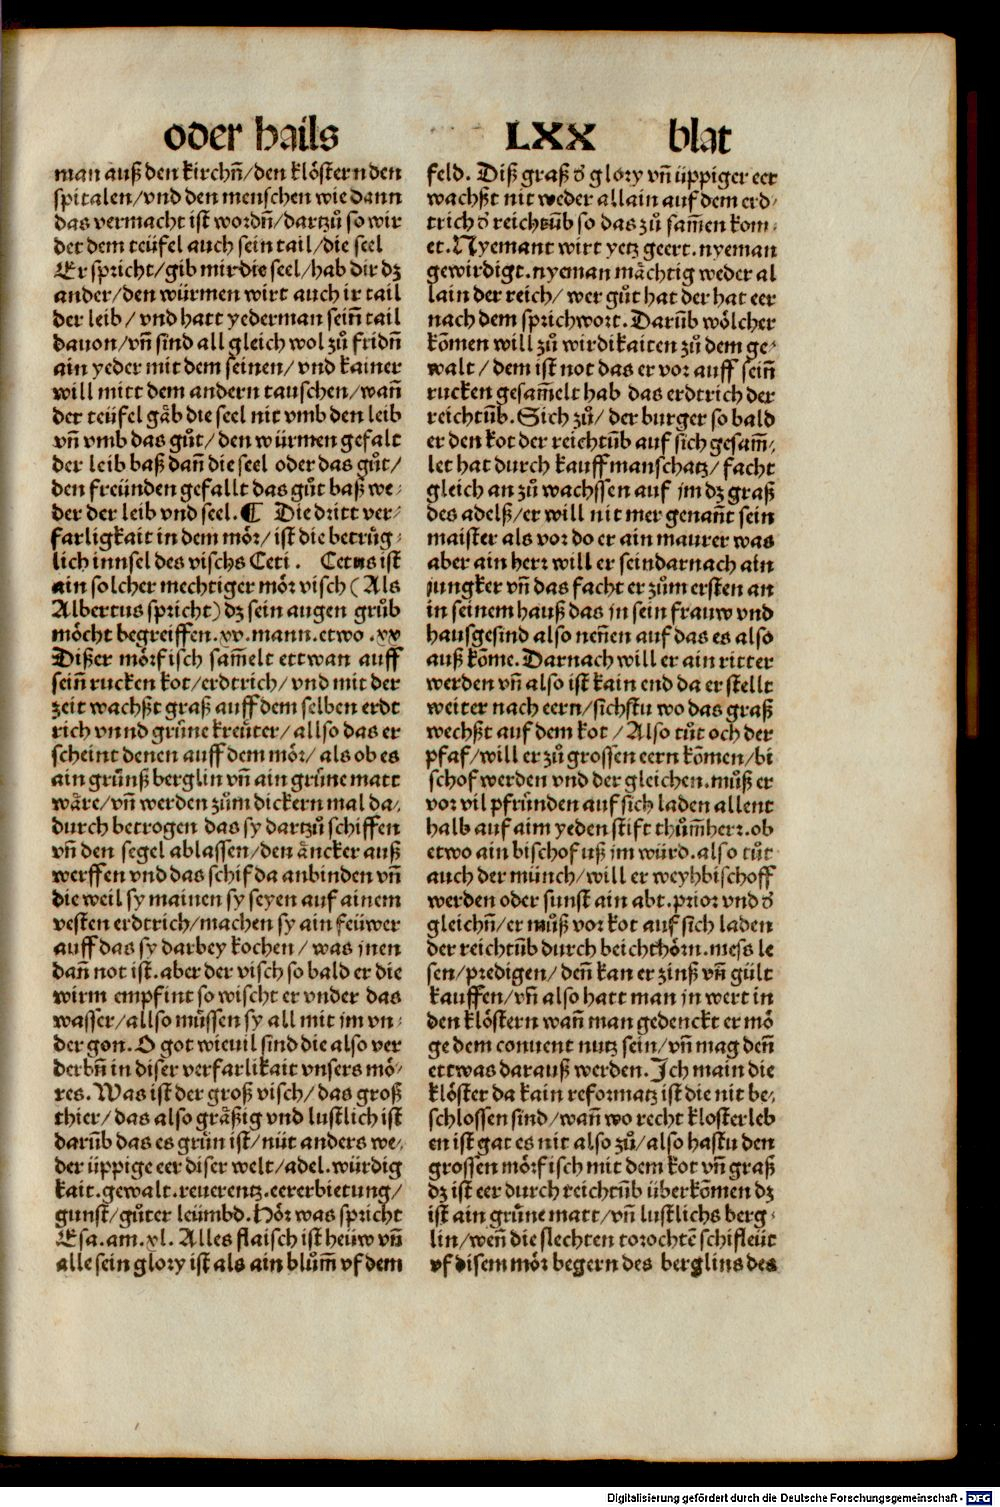 oder hails LXX blat
man auß den kirchñ/den klöstern den
spitalen/vnd den menschen wie dann
das vermacht ist wordñ/dartzů so wir
det dem teüfel auch sein tail/die seel
Er spricht/gib mir die seel/hab dir dz
ander/den würmen wirt auch ir tail
der leib/vnd hatt yederman seiñ tail
dauon/vñ sind all gleich wol zů fridñ
ain yeder mit dem seinen/vnd kainer
will mitt dem andern tauschen/wañ
der teüfel gäb die seel nit vmb den leib
vñ vmb das gůt/den würmen gefalt
der leib baß dañ die seel oder das gůt/
den freünden gefallt das gůt baß we⸗
der der leib vnd seel. ¶ Die dritt ver⸗
farligkait in dem mör/ist die betrüg⸗
lich innsel des vischs Ceti. Cetus ist
ain solcher mechtiger mör visch (Als
Albertus spricht) dz sein augen grůb
möcht begreiffen.xv.mann.etwo.xx
Dißer mörfisch sam̃elt ettwan auff
seiñ rucken kot/erdtrich/vnd mit der
zeit wachßt graß auff dem selben erdt
rich vnnd grüne kreüter/allso das er
scheint denen auff dem mör/als ob es
ain grünß berglin vñ ain grüne matt
wäre/vñ werden zům dickern mal da⸗
durch betrogen das sy dartzů schiffen
vñ den segel ablassen/den äncker auß
werffen vnd das schif da anbinden vñ
die weil sy mainen sy seyen auf ainem
vesten erdtrich/machen sy ain feüwer
auff das sy darbey kochen/was jnen
dañ not ist.aber der visch so bald er die
wirm empfint so wischt er vnder das
wasser/allso müssen sy all mit jm vn⸗
der gon.O got wieuil sind die also ver
derbñ in diser verfarlikait vnsers mö⸗
res.Was ist der groß visch/das groß
thier/das also gräßig vnd lustlich ist
darüb das es grün ist/nüt anders we⸗
der üppige eer diser welt/adel.würdig
kait.gewalt.reuerentz.eererbietung/
gunst/gůter leümbd.Hör was spricht
Esa.am.xl.Alles flaisch ist heüw vñ
alle sein glory ist als ain blům̃ vf dem
feld. Diß graß ð glory vñ üppiger eer
wachßt nit weder allain auf dem erd⸗
trich ð reichtūb so das zů sam̃en kom⸗
et.Nyemant wirt yetz geert.nyeman
gewirdigt.nyeman mächtig weder al
lain der reich/wer gůt hat der hat eer
nach dem sprichwort.Darūb wölcher
kõmen will zů wirdikaiten zů dem ge⸗
walt/dem ist not das er vor auff seiñ
rucken gesam̃elt hab das erdtrich der
reichtūb.Sich zů/der burger so bald
er den kot der reichtūb auf sich gesam̃⸗
let hat durch kauffmanschatz/facht
gleich an zů wachssen auf jm dz graß
des adelß/er will nit mer genañt sein
maister als vor do er ain maurer was
aber ain herr will er sein darnach ain
jungker vñ das facht er zům ersten an
in seinem hauß das jn sein frauw vnd
hausgesind also neñen auf das es also
auß kõme.Darnach will er ain ritter
werden vñ also ist kain end da er stellt
weiter nach eern/sichstu wo das graß
wechßt auf dem kot/Also tůt och der
pfaf/will er zů grossen eern kõmen/bi
schof werden vnd der gleichen.můß er
vor vil pfründen auf sich laden allent
halb auf aim yeden stift thům̃herr.ob
etwo ain bischof uß jm würd.also tůt
auch der münch/will er weyhbischoff
werden oder sunst ain abt.prior vnd ð
gleichñ/er můß vor kot auf sich laden
der reichtūb durch beichthörn.mess le
sen/predigen/deñ kan er zinß vñ gült
kauffen/vñ also hatt man jn wert in
den klöstern wañ man gedenckt er mö
ge dem conuent nutz sein/vñ mag deñ
ettwas darauß werden.Ich main die
klöster da kain reformatz ist die nit be⸗
schlossen sind/wañ wo recht klosterleb
en ist gat es nit also zů/also hastu den
grossen mörfisch mit dem kot vñ graß
dz ist eer durch reichtūb überkõmen dz
ist ain grüne matt/vñ lustlichs berg⸗
lin/weñ die slechten torochtē schifleüt
vf disem mör begern des berglins des
Digitalisierung gefördert durch die Deutsche Forschungsgemeinschaft - DFG